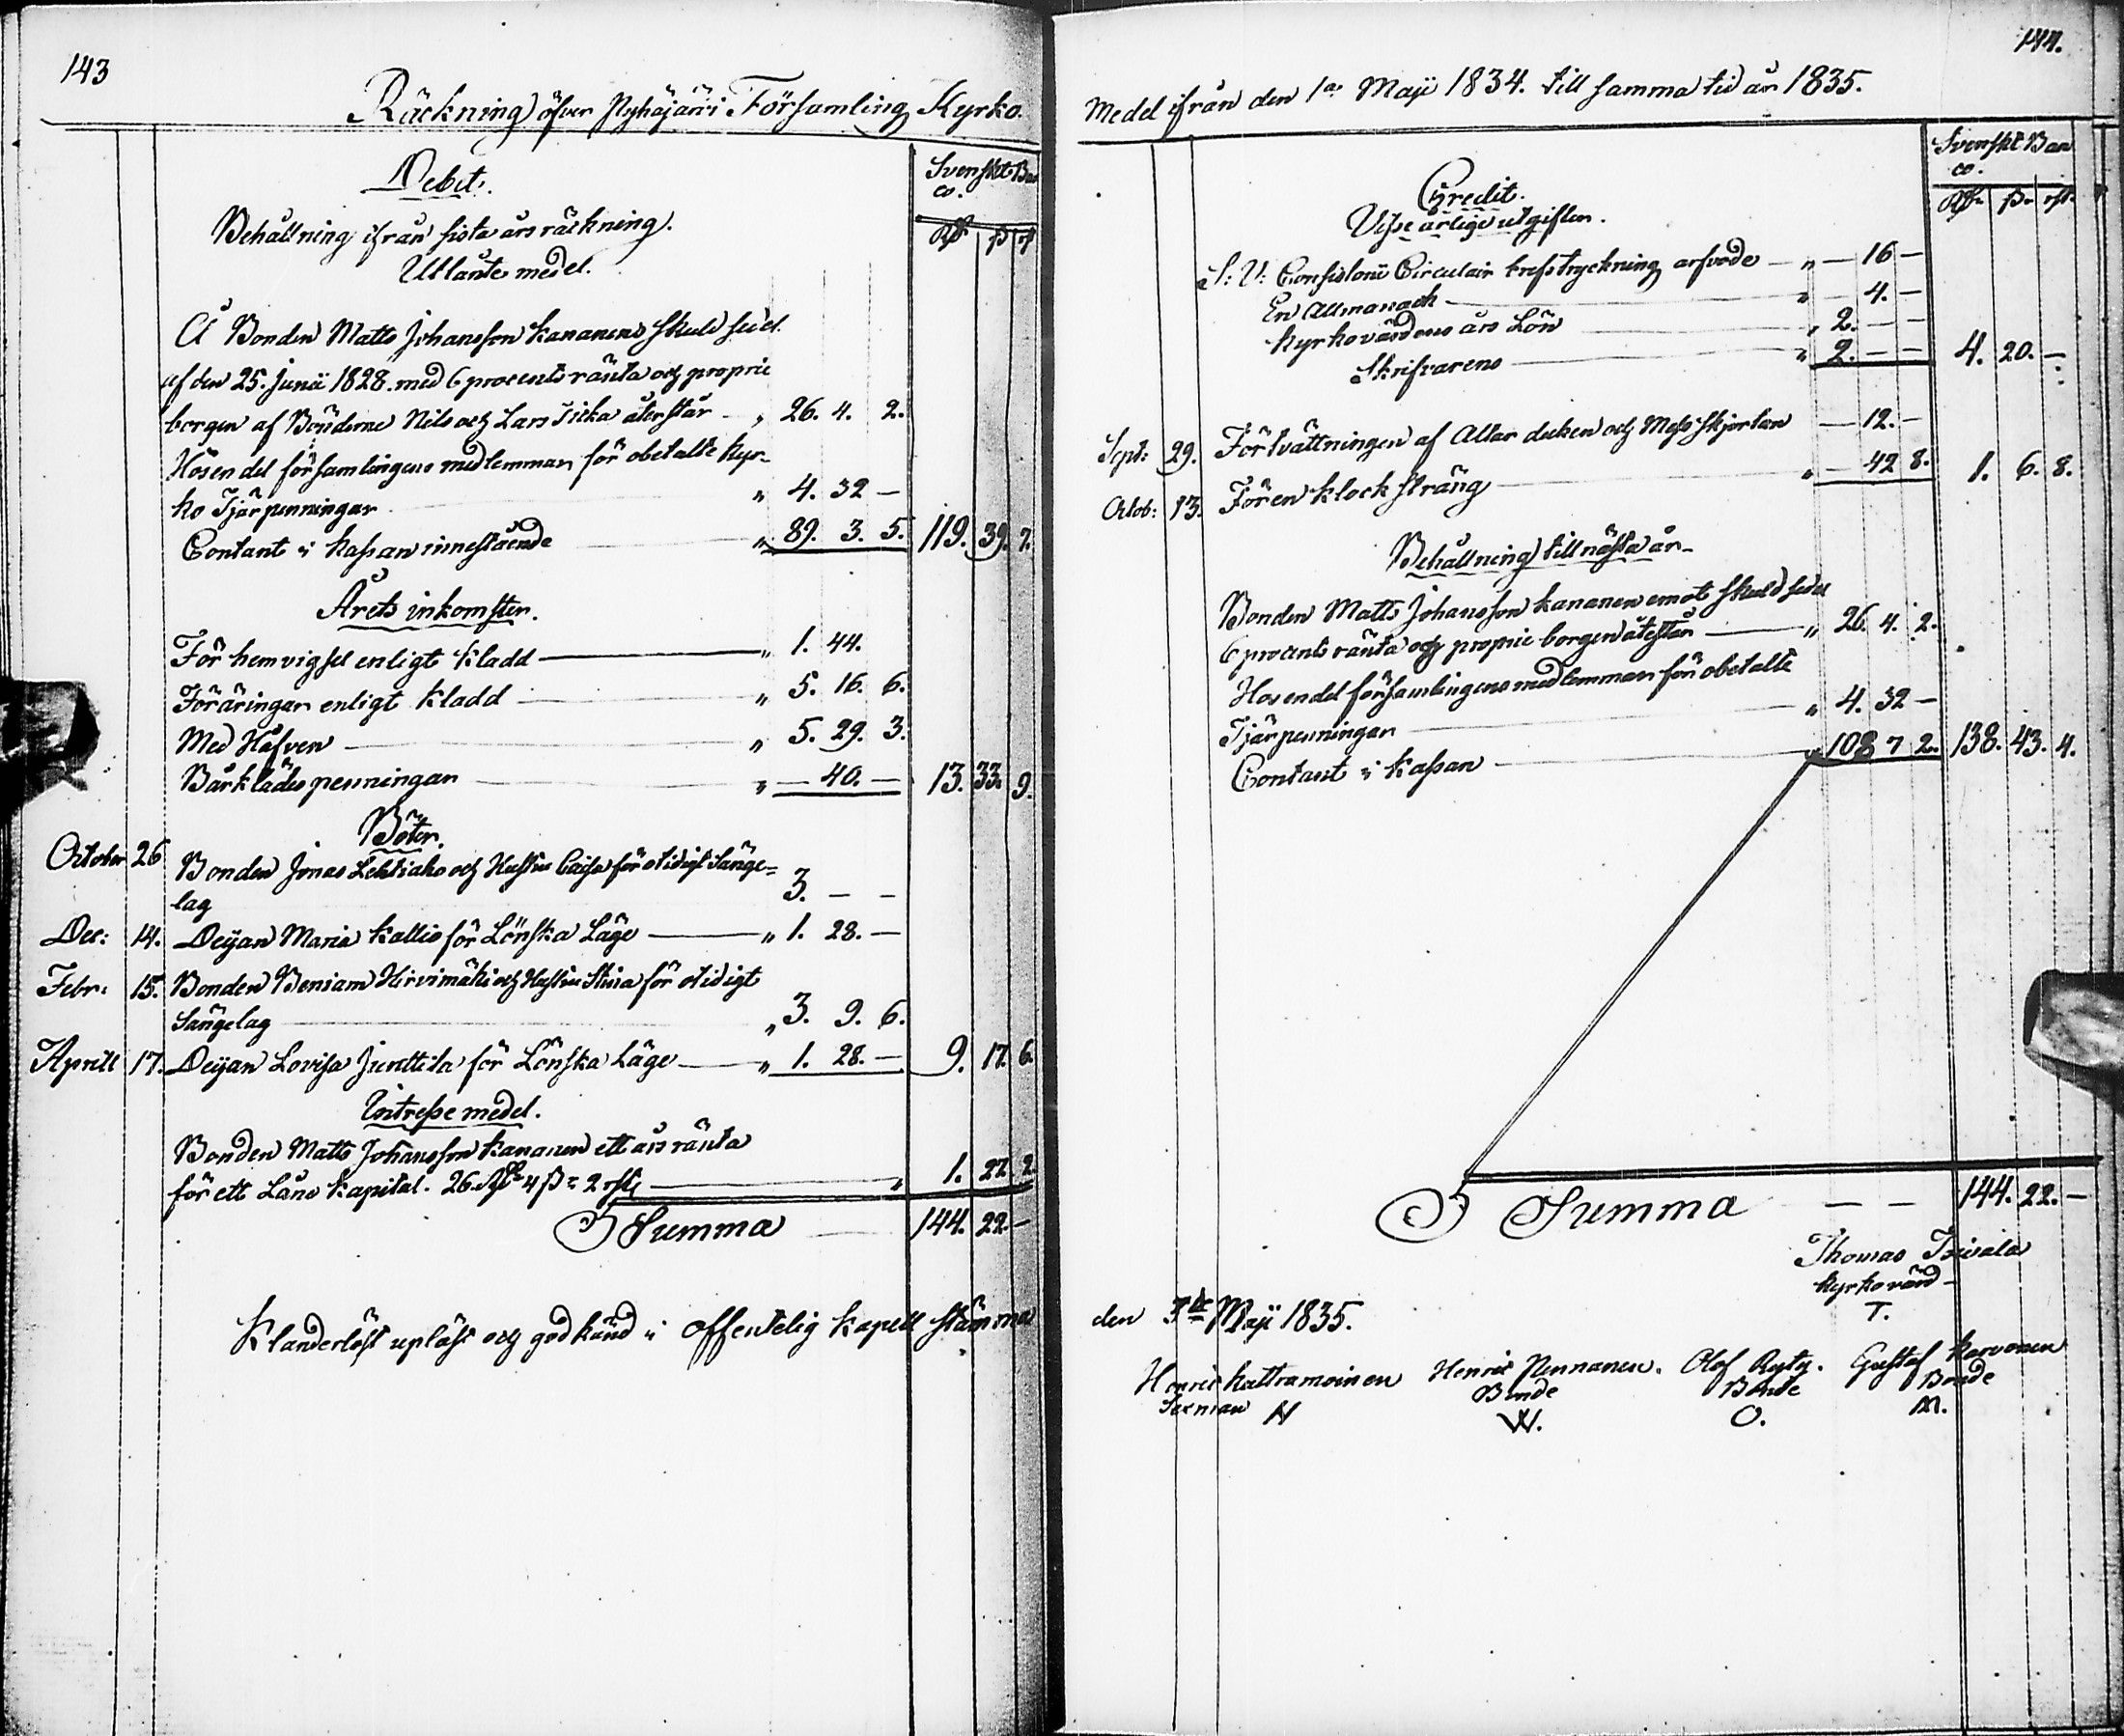 143
Räckning öfver Pyhäjärvi Församling Kyrko.
Debet.
Svenskt Ban
co.
Behållning ifrån sista års räckning.
Rd ß rst
Utlånte medel.
Å Bonden Matts Johansson Kananens Skuld sedel
af den 25. Junii 1828. med 6 procents ränta och proprie
borgen af Bönderne Nils och Lars återstår „ 26. 4. 2.
Hos en del församlingens medlemmar för obetalte Kyr-
ko Tjärpenningar „ 4. 32 —
Contant i kassan innestående „ 89. 3. 5. 119. 39. 7.
Årets inkomster.
För hemvigsel enligt Kladd „ 1. 44.
Föräringar enligt Kladd „ 5. 16. 6.
Med Håfven „ 5. 29. 3.
Bårklädes penningar „ — 40. — 13. 33. 9.
Böter.
October 26 Bonden Jonas Lehtiaho och Hustru Caisa för otidigt Sänge=
lag 3. — —
Dec: 14. Deijan Maria Kallio för Lönska Läge „ 1. 28. —
Febr: 15. Bonden Beniam Hirvimäki och Hustru Stina för otidigt
Sängelag „ 3. 9. 6.
Aprill 17. Deijan Lovisa Junttila för Lönska Läge „ 1. 28. — 9. 17. 6.
Intresse medel.
Bonden Matts Johansson Kananen ett års ränta
för ett Låns Kapital. 26. Rd 4 ß 2 rst „ 1. 27. 2
Summa 144. 22. —
Klanderlöst upläst och godkänd i offentelig Kapell stämma
144.
Medel ifrån den 1a Maji 1834. till samma tid år 1835.
Svenskt Ban
co.
Credit.
Rd ß rst
Visse årlige utgifter.
S: V: Consistorii Circulair brefstryckning arfvode „ — 16 —
En Allmanach „ — 4. —
Kyrkovärdens års Lön „ 2. — —
Skrifvarens „ 2. — — 4. 20. —
Sept: 29. För tvättningen af Altar duken och Mess Skjortan — 12. —
Octob: 13. För en klock sträng „ — 42 8. 1. 6. 8.
Behållning till nästa år
Bonden Matts Johansson Kananen emot Skuld sedel
6 procents ränta och proprie borgen återstår „ 26. 4. 2.
Hos en del församlingens medlemmar för obetalte
Tjärpenningar „ 4. 32 —
Contant i Kassan „ 108 7 2. 138. 43. 4.
Summa — — 144. 22. —
Thomas
Kyrkovärd
T.
den 3de Maji 1835.
Henric Kattramoinen Henric Pennanen. Olof Ryty. Gustaf Karvonen
Sexman Bonde Bonde Bonde
N W. O. M.